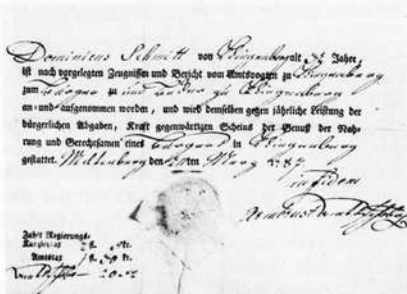 Dominicus Schmitt von Klingenberg alt 32 Jahre,
ist nach vorgelegten Zeugnissen und Bericht vom Amtsvogten zu Klingenberg
zum Bürger zu Klingenberg
an- und aufgenommen worden, und wird demselben gegen jährliche Leistung der
bürgerlichen Abgaben, Kraft gegenwärtigen Scheins der Genuß der Nah-
rung und Gerechtsamen eines Bürgers in Klingenberg
gestattet. Miltenberg den ten März
in fidem
Zahlt Regierungs-
Kanzleitax fl. kr.
Amtstax fl. kr.